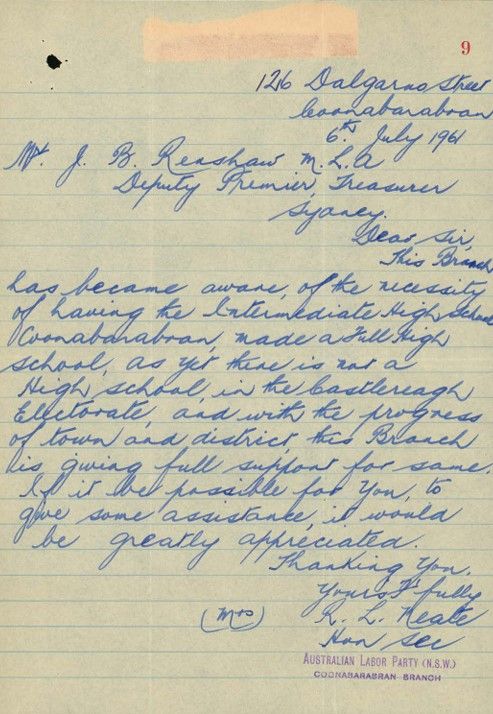 9
126 Dalgarno Street
Coonabarabran
6th July 1961
Mr. J. B. Renshaw M.L.A
Deputy Premier, Treasurer
Sydney.
Dear Sir,
This Branch
has became aware, of the necessity
of having the Intermediate High School
Coonabarabran, made a Full High
school, as yet there is not a
High school, in the Castlereagh
Electorate, and with the progress
of town and district, this Branch
is giving full support for same.
If it be possible for You, to
give some assistance, it would
be greatly appreciated.
Thanking You.
Yours F'fully
(Mrs) R. L. Neate
Hon Sec
AUSTRALIAN LABOR PARTY (N.S.W.)
COONABARABRAN BRANCH